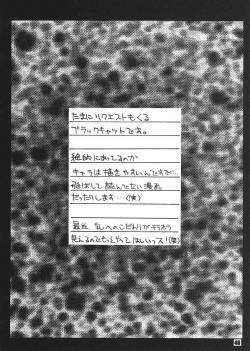 たまにリクエストもくる
ブラックキャットです。
絵的にあってるのか
キャラは描きやすいんですが…
飛ばして読んでない漫画
だったりします…(笑)
最近、乳へのこだわりがチラホラ
見えるのでもっとやってほしいっス!(笑)